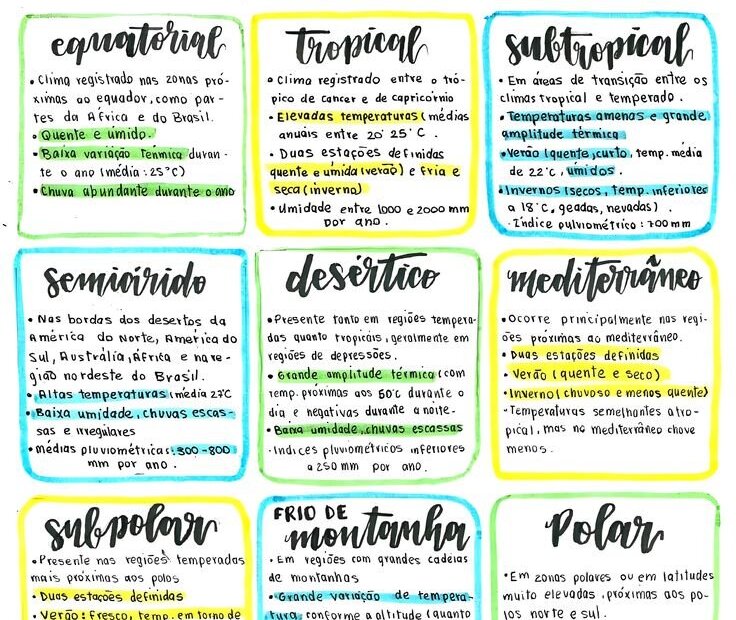 equatorial
• Clima registrado nas zonas pró-
ximas ao equador, como par-
tes da África e do Brasil.
• Quente e úmido.
• Baixa variação Térmica duran-
te o ano (média: 25°C)
• Chuva abundante durante o ano
tropical
• Clima registrado entre o tró-
pico de cancer e de capricórnio
• Elevadas temperaturas (médias
anuais entre 20° 25°C.
• Duas estações definidas
quente e úmida (verão) e fria e
seca (inverno)
• Umidade entre 1000 e 2000 mm
por ano.
subtropical
• Em áreas de transição entre os
climas tropical e temperado.
• Temperaturas amenas e grande
amplitude térmica
• Verão (quente, curto, temp. média
de 22°C, úmidos.
• Invernos (secos, temp. inferiores
a 18°C, geadas, nevadas).
• Índice pulviométrico: 700 mm
semiárido
• Nas bordas dos desertos da
América do Norte, América do
Sul, Austrália, África e na re-
gião nordeste do Brasil.
• Altas temperaturas (média 27°C
• Baixa umidade, chuvas escas-
sas e irregulares
• médias pluviométricas: 300-800
mm por ano.
desértico
• Presente tanto em regiões tempera-
das quanto tropicais, geralmente em
regiões de depressões.
• Grande amplitude térmica (com
temp. próximas aos 50°C durante o
dia e negativas durante a noite.
• Baixa umidade, chuvas escassas
• Indices pluviométricos inferiores
a 250 mm por ano.
mediterrâneo
• Ocorre principalmente nas regi-
ões próximas ao mediterrâneo.
• Duas estações definidas
• Verão (quente e seco)
• Inverno (chuvoso e menos quente)
• Temperaturas semelhantes a tro-
pical, mas no mediterrâneo chove
menos.
subpolar
• Presente nas regiões temperadas
mais próximas aos polos
• Duas estações definidas
• Verão: fresco, temp. em torno de
FRIO DE
montanha
• Em regiões com grandes cadeias
de montanhas
• Grande variação de tempera-
tura, conforme a altitude (quanto
Polar
• Em zonas polares ou em latitudes
muito elevadas, próximas aos po-
los norte e sul.